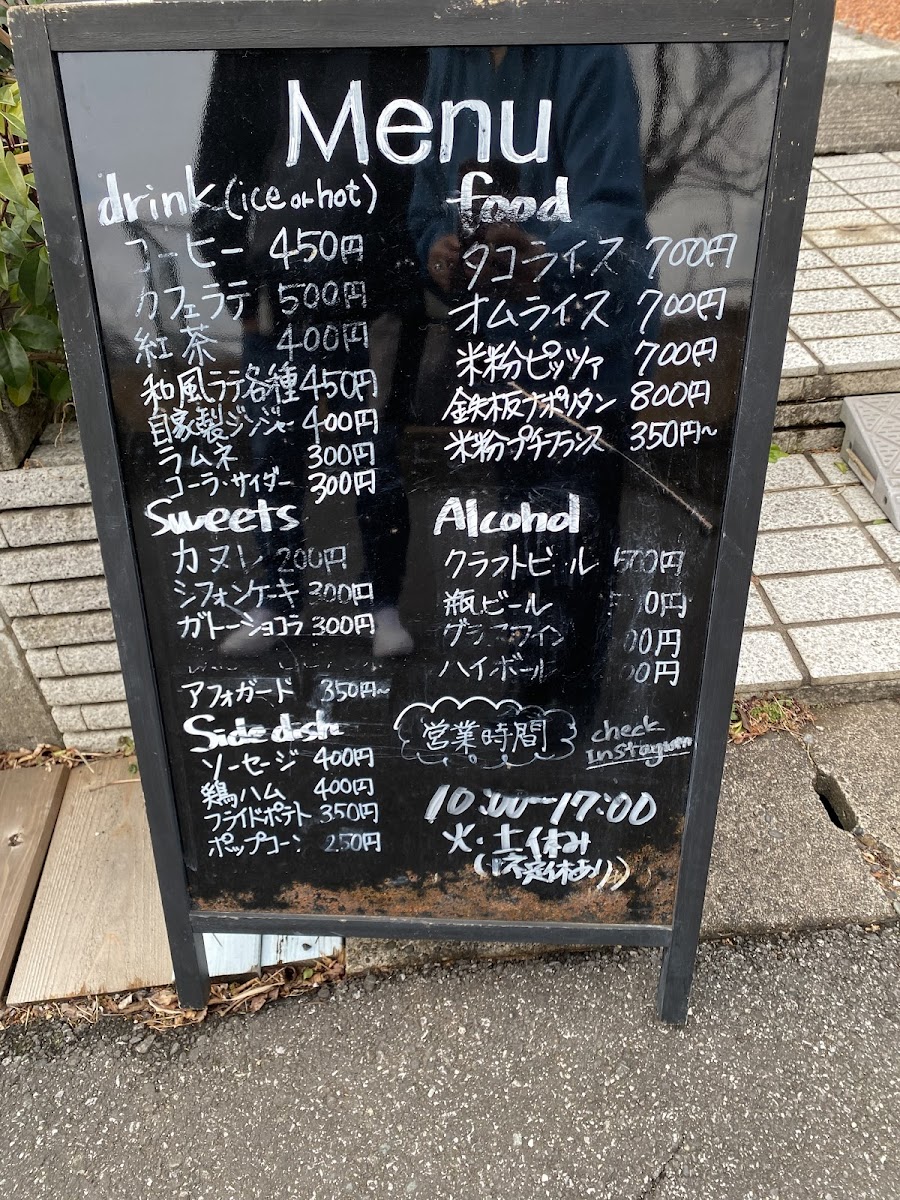 Menu
drink (ice or hot)
コーヒー 450円
カフェラテ 500円
紅茶 400円
和風ラテ各種 450円
自家製ジンジャー 400円
ラムネ 300円
コーラ・サイダー 300円
Sweets
カヌレ 200円
シフォンケーキ 300円
ガトーショコラ 300円
アフォガード 350円~
Side dish
ソーセージ 400円
鶏ハム 400円
フライドポテト 350円
ポップコーン 250円
food
タコライス 700円
オムライス 700円
米粉ピッツァ 700円
鉄板ナポリタン 800円
米粉プチフランス 350円~
Alcohol
クラフトビール 円
瓶ビール 円
グラスワイン 円
ハイボール 円
営業時間
check
Instagram
10:00~17:00
火・土休み
(不定休あり)